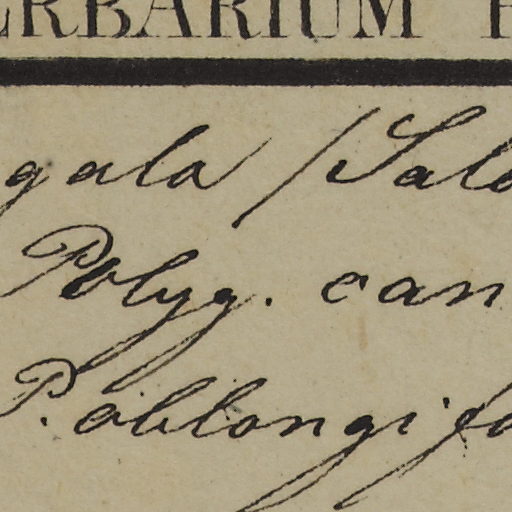 ERBARIUM
gala /Salo
Polyg. can
P. oblongifo